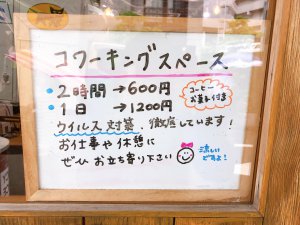 コワーキングスペース
・2時間→600円
・1日→1200円
コーヒー
お菓子付き
ウイルス対策、徹底しています!
お仕事や休憩に
ぜひお立ち寄り下さい
涼しい
ですよ!